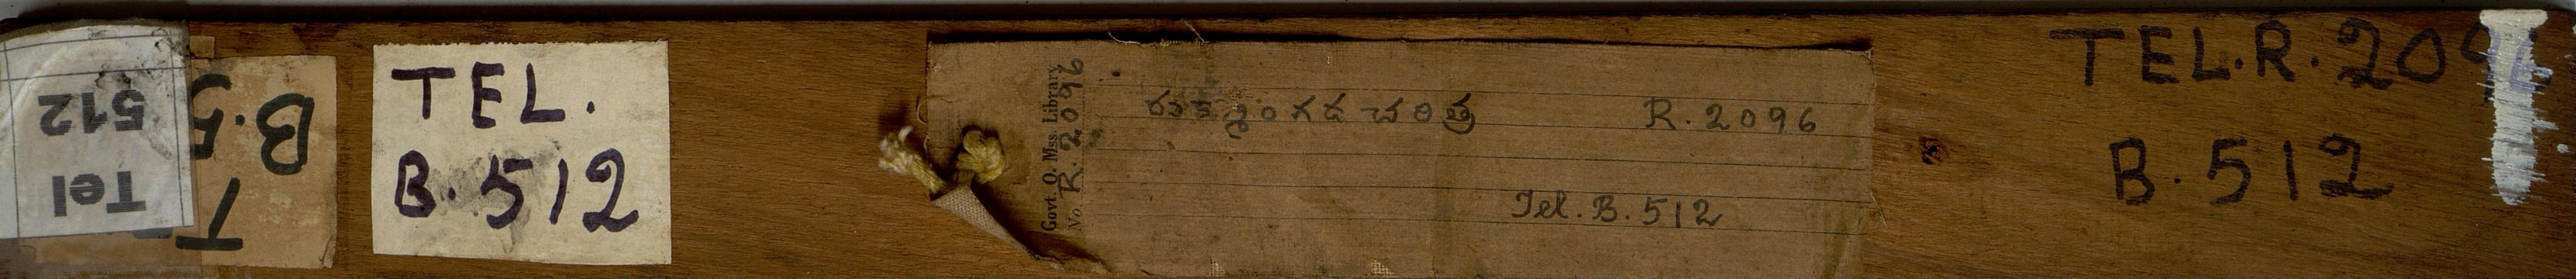 Tel
512
B.5
T
TEL.
B.512
Govt. O. Mss. Library
No. R. 2096
రుక్మాంగద చరిత్ర R. 2096
Tel. B. 512
TEL.R.209
B.512